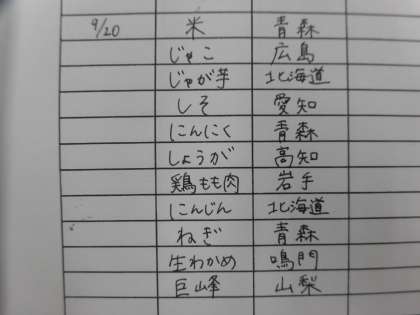 9/20 米 青森
じゃこ 広島
じゃが芋 北海道
しそ 愛知
にんにく 青森
しょうが 高知
鶏もも肉 岩手
にんじん 北海道
ねぎ 青森
生わかめ 鳴門
巨峰 山梨